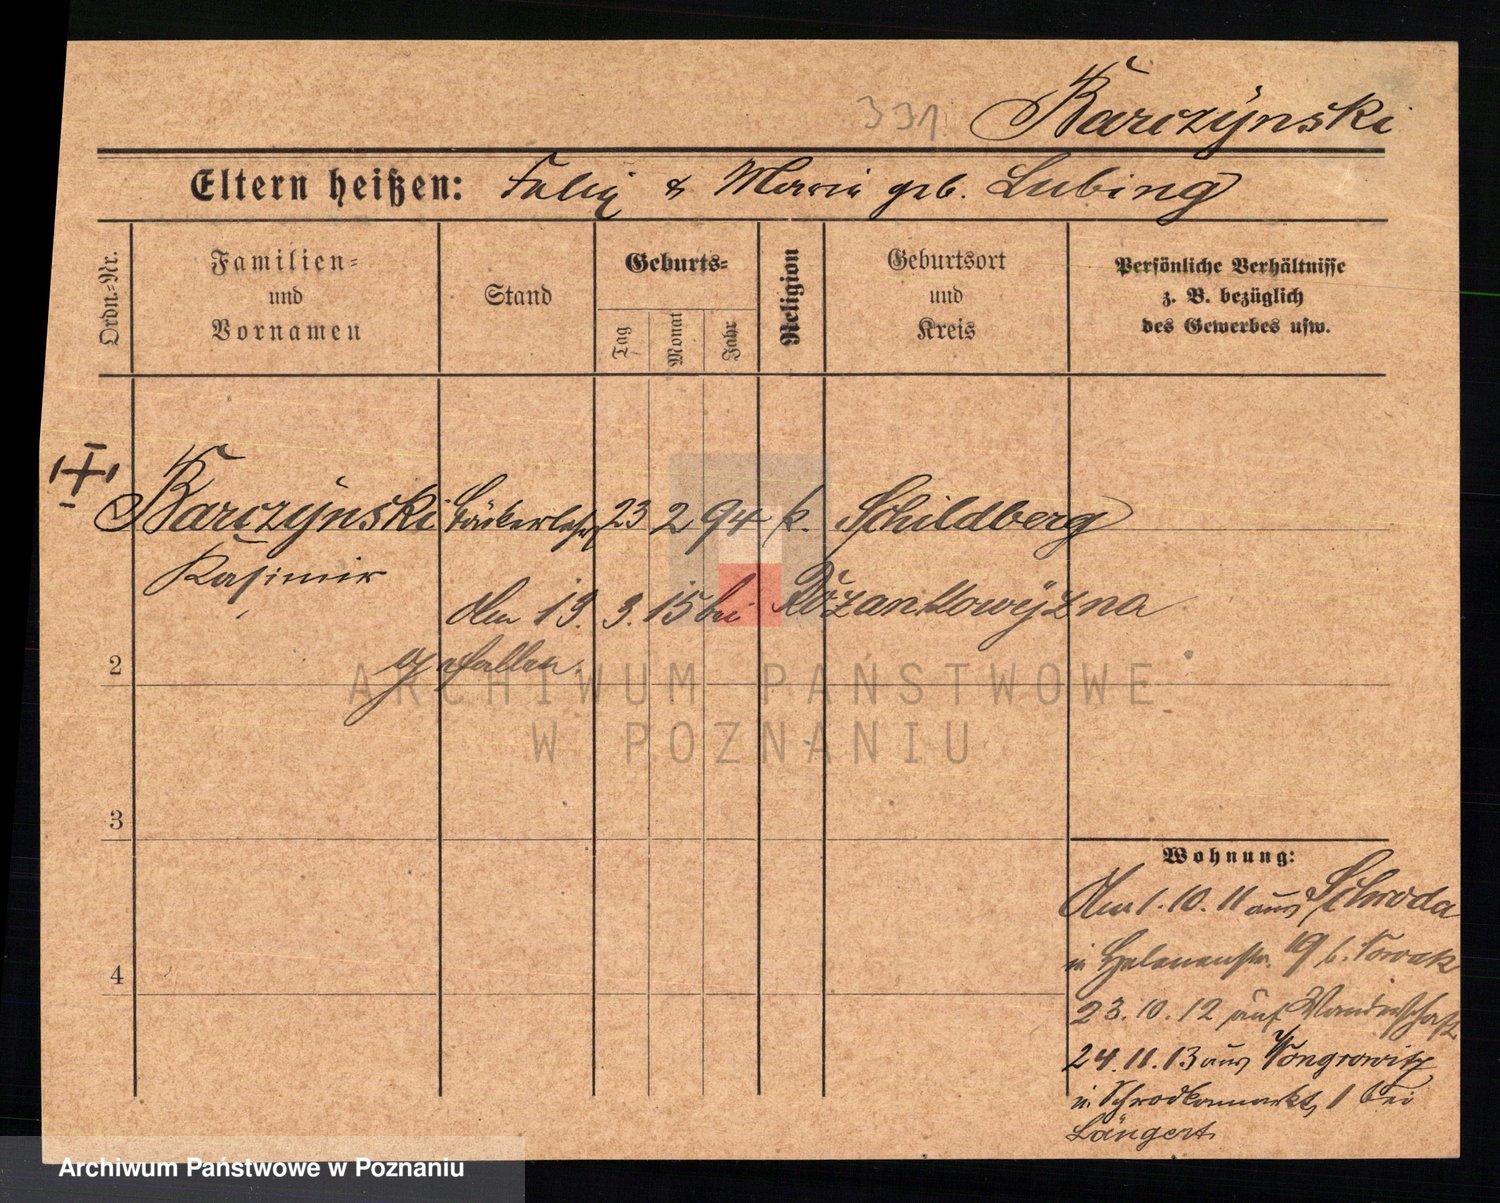 331. Karczynski
Eltern heißen: Felix & Maria geb. Lubing
Ordn.=Nr.
Familien=
und
Vornamen
Stand
Geburts=
Tag
Monat
Jahr
Religion
Geburtsort
und
Kreis
Persönliche Verhältnisse
z. B. bezüglich
des Gewerbes usw.
Karczynski Bäckerlehr 23 2 94 k. Schildberg
Kasimir
den 19. 9. 15 bei Różankowyzna
gefallen.
2
3
4
Wohnung:
Den 1. 10. 11 aus Schroda
in Helenenstr. 19 b. Nowak
23. 10. 12 auf Wanderschaft
24. 11. 13 aus Wongrowitz
in Schrodkamarkt 1 bei
Längert.
ARCHIWUM PAŃSTWOWE
W POZNANIU
Archiwum Państwowe w Poznaniu